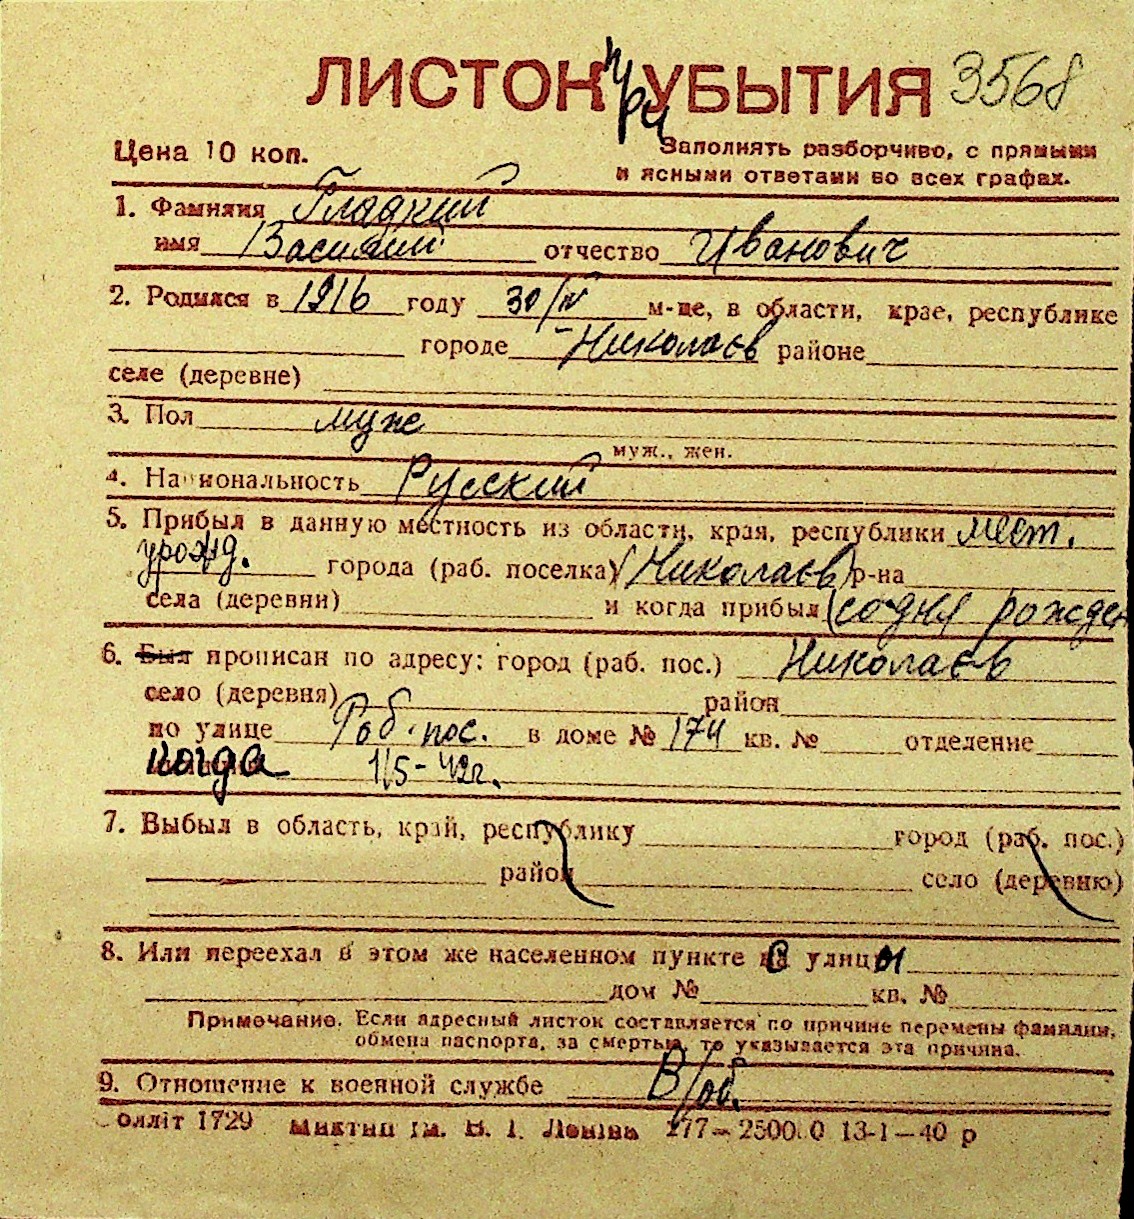 ЛИСТОК при УБЫТИЯ 3568
Цена 10 коп.
Заполнять разборчиво, с прямыми
и ясными ответами во всех графах.
1. Фамилия Гладкий
имя Василий отчество Иванович
2. Родился в 1916 году 30/IV м-це, в области, крае, республике
городе Николаев районе
селе (деревне)
3. Пол муж
муж., жен.
4. Национальность Русский
5. Прибыл в данную местность из области, края, республики мест.
урожд. города (раб. поселка) (Николаев) р-на
села (деревни) и когда прибыл (со дня рожден
6. Был прописан по адресу: город (раб. пос.) Николаев
село (деревня) район
по улице Раб. пос. в доме № 174 кв. № отделение
когда 1/5-42г.
7. Выбыл в область, край, республику город (раб. пос.)
район село (деревню)
8. Или переехал в этом же населенном пункте с улицы
дом № кв. №
Примечание. Если адресный листок составляется по причине перемены фамилии,
обмена паспорта, за смертью, то указывается эта причина.
9. Отношение к военной службе В/об.
олліт 1729 им. В. І. Леніна 277—25000 13-1—40 р